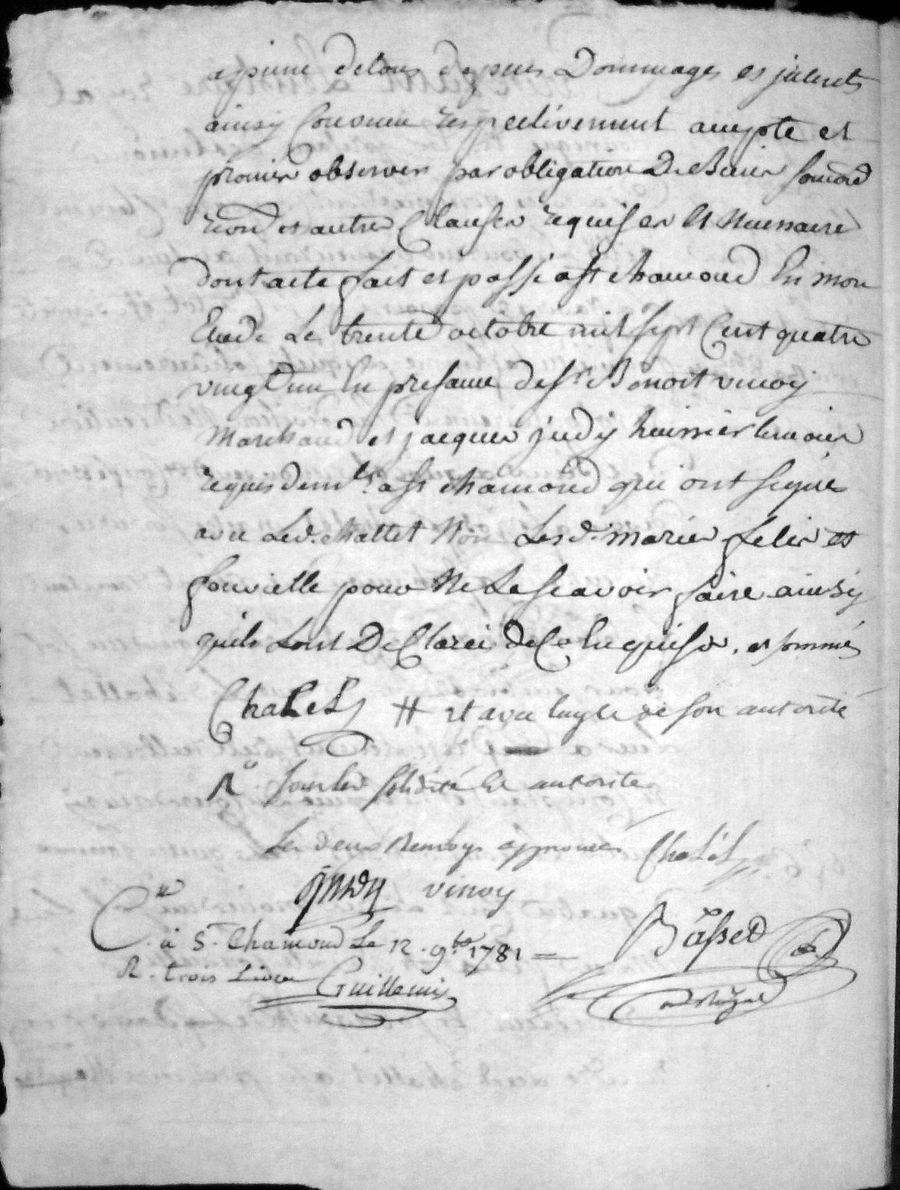 a peine de tous depens Dommages et interets
ainsy Convenu respectivement accepte et
promis observer par obligation De Biens
et autre Clauses requises Et Necessaire
dont acte fait et passé a St chamond En mon
Etude Le trente octobre mil sept Cent quatre
vingt un En presence de Sr. Benoit vinoy
Marchand et jacques judy huissier temoins
requis demts. a St chamond qui ont signe
avec Led. challet Non Lesd. mariés felix et
pour Ne Le scavoir faire ainsy
quils Lont Declaréi de Ce Enquise, et sommés
ChaLeLj # et avec de son autorité
Ro solidité et autorite
Les deux Renvoys approuvés ChaLeLj
judy vinoy
Cle à St. Chamond Le 12. 9bre 1781 Basset
R. trois Livres Guillemin